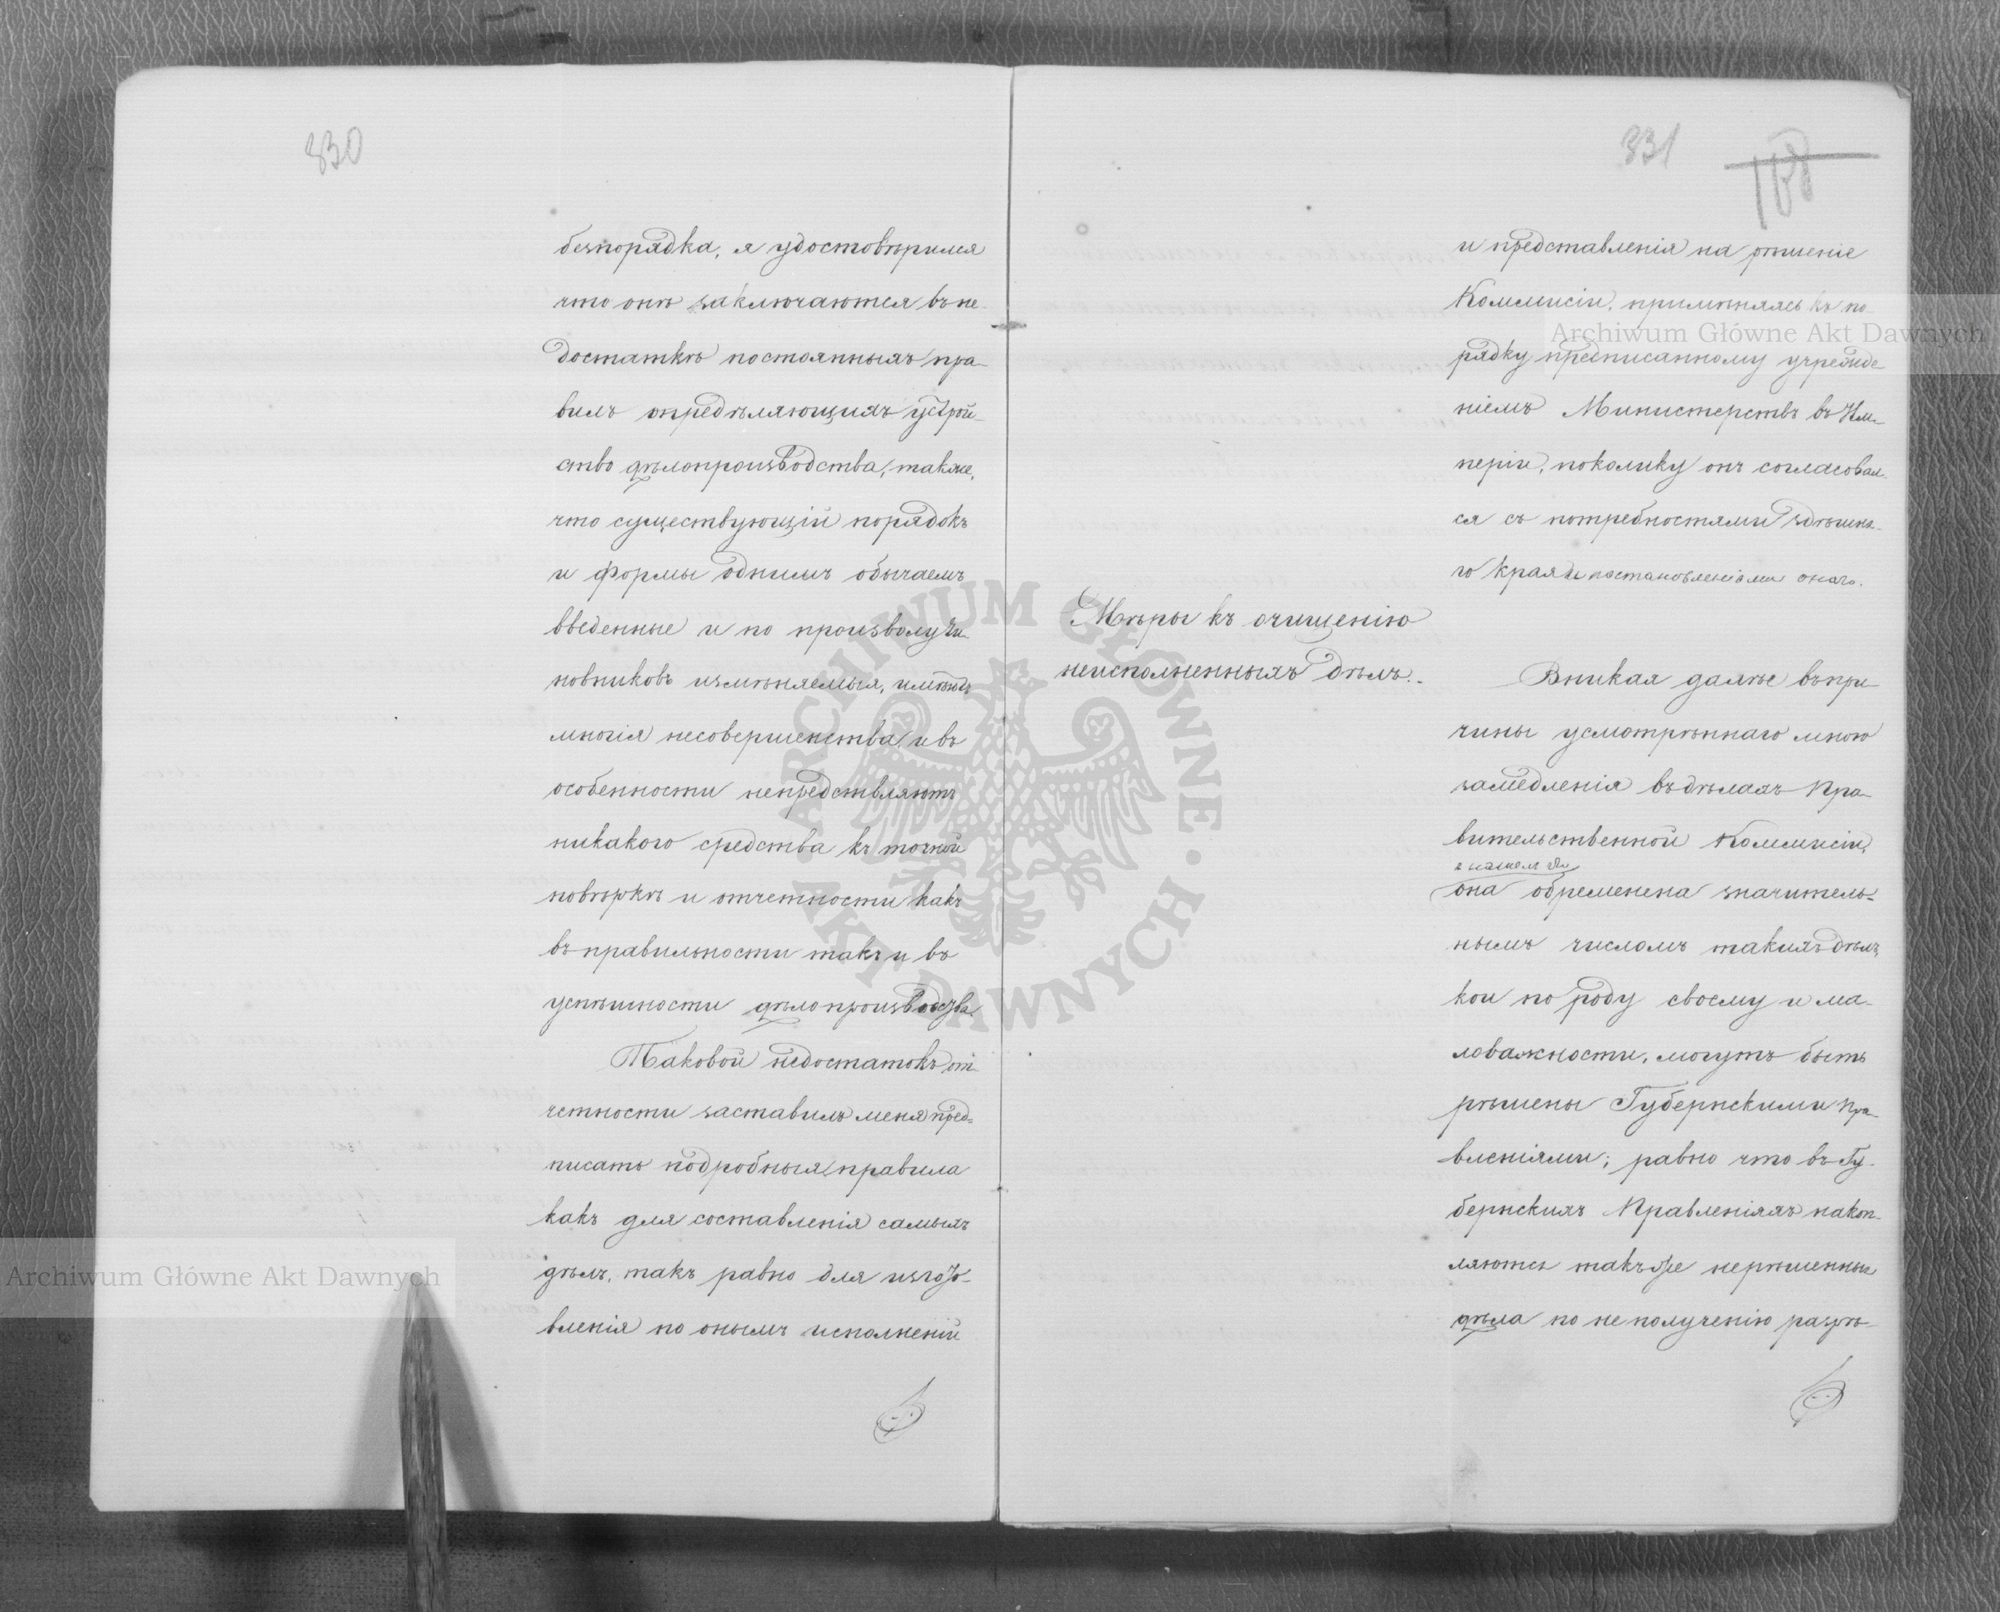 830
безпорядка, я удостовѣрился
что онѣ заключаются въ не-
достаткѣ постоянныхъ пра-
вилъ опредѣляющихъ устрой-
ство дѣлопроизводства, также,
что существующій порядокъ
и формы однимъ обычаемъ
введенные и по произволу чи-
новниковъ измѣняемыя, имѣютъ
многія несовершенства и въ
особенности непредствляютъ
никакого средства къ точной
повѣркѣ и отчетности какъ
въ правильности такъ и въ
успѣшности дѣлопроизводства
Таковой недостатокъ от-
четности заставилъ меня пред-
писать подробныя правила
какъ для составленія самыхъ
дѣлъ, такъ равно для изгото-
вленія по онымъ исполненій
331
и представленія на рѣшеніе
Коммисіи, примѣняясь къ по-
рядку предписанному учрежде-
ніемъ Министерствъ въ Им-
періи, поколику онъ согласовал-
ся съ потребностями здѣшня-
го края и постановленіями онаго.
Мѣры къ очищенію
неисполненныхъ дѣлъ.
Вникая далѣе въ при-
чины усмотрѣннаго мною
замедленія въ дѣлахъ Пра-
вительственной Коммисіи,
она обременена значитель-
нымъ числомъ такихъ дѣлъ
кои по роду своему и ма-
ловажности, могутъ быть
рѣшены Губернскими Пра-
вленіями; равно что въ Гу-
бернскихъ Правленіяхъ накоп-
ляются такъ же нерѣшенные
дѣла по неполученію разрѣ-
Archiwum Główne Akt Dawnych
Archiwum Główne Akt Dawnych
ARCHIWUM GŁÓWNE • AKT DAWNYCH •